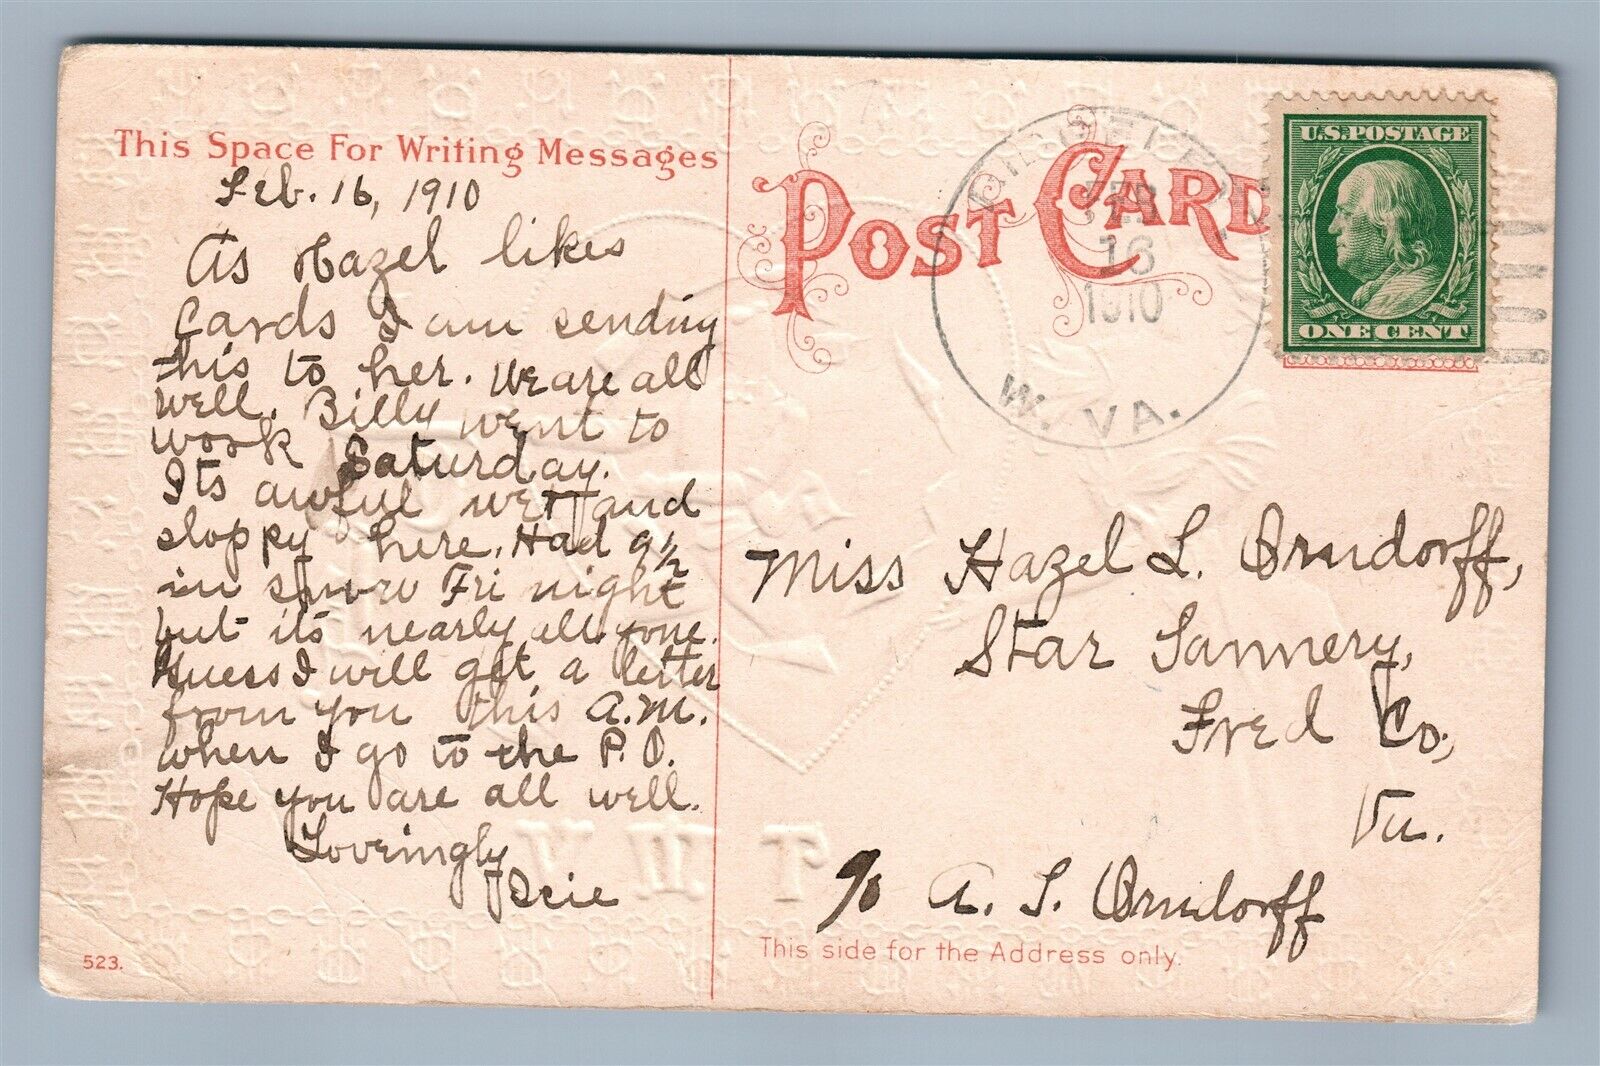 This Space For Writing Messages
Feb. 16, 1910
As Hazel likes
Cards I am sending
this to her. We are all
well. Billy went to
work Saturday.
Its awful wet and
sloppy here. Had 9½
in snow Fri night
but its nearly all gone.
Guess I will get a letter
from you this A.M.
when I go to the P.O.
Hope you are all well.
Lovingly
523.
POST CARD
FEB
16
1910
W. VA.
U.S. POSTAGE
ONE CENT
Miss Hazel L. Orndorff,
Star Tannery,
Fred Co,
Va.
c/o A. S. Orndorff
This side for the Address only.